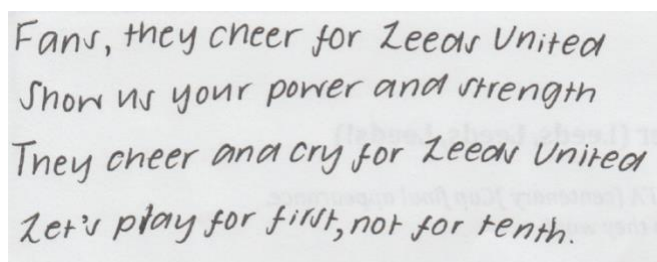 Fans, they cheer for Leeds United
Show us your power and strength
They cheer and cry for Leeds United
Let's play for first, not for tenth.